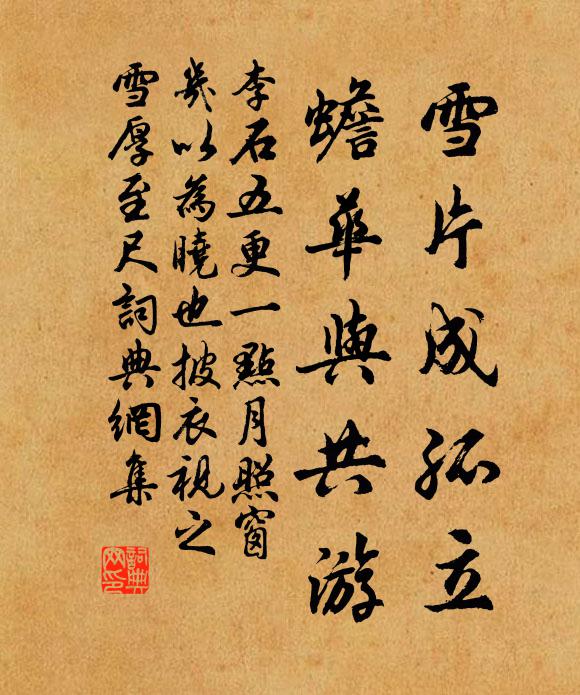 雪片成孤立
蟾華與共游
李石五更一點月照窗
幾以為曉也披衣視之
雪厚至尺詞典網集
詞典
网印